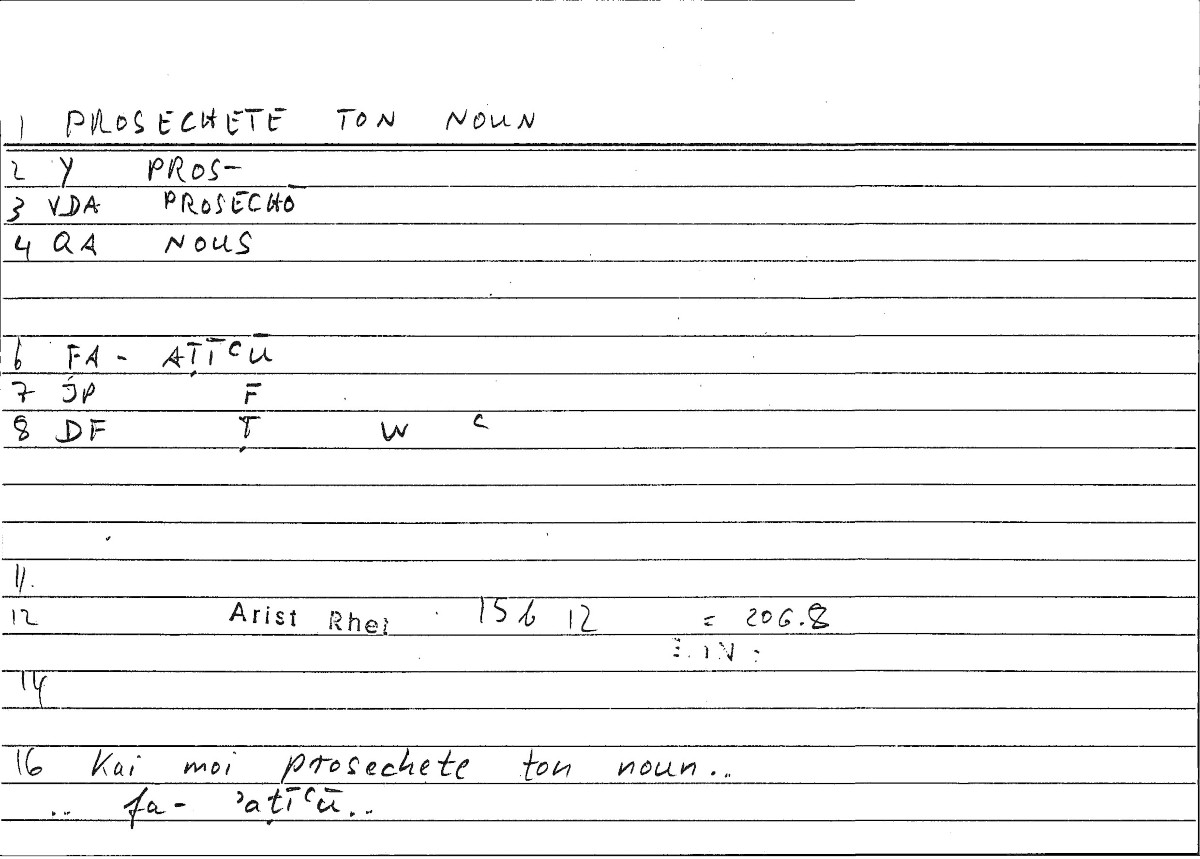 1 PROSECHETE TON NOUN
2 Y PROS-
3 VDA PROSECHŌ
4 QA NOUS
6 FA- AṬĪʿŪ
7 JP F
8 DF Ṭ W ʿ
11.
12 Arist Rhet 156 12 = 206.8
14
16 Kai moi prosechete ton noun..
.. fa- ʾaṭīʿū..